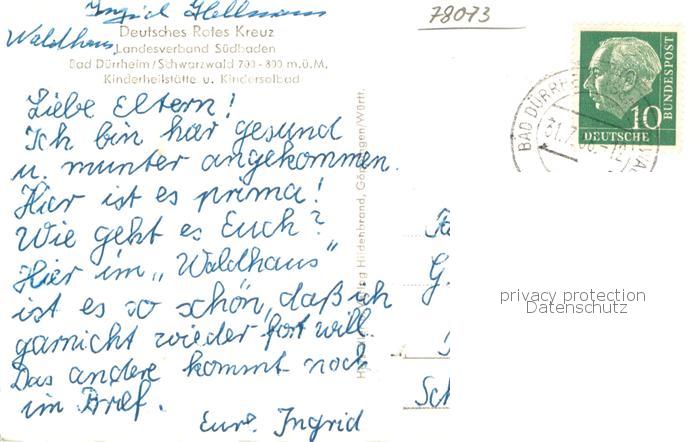 Ingrid Hellmann
Waldhaus
Deutsches Rotes Kreuz
Landesverband Südbaden
Bad Dürrheim/Schwarzwald 700-800 m.ü.M.
Kinderheilstätte u. Kindersolbad
Liebe Eltern!
Ich bin hier gesund
u. munter angekommen.
Hier ist es prima!
Wie geht es Euch?
Hier im „Waldhaus"
ist es so schön, daß ich
garnicht wieder fort will.
Das andere kommt noch
im Brief.
Eure Ingrid
78073
10
DEUTSCHE
BUNDESPOST
BAD DÜRRHEIM
31.7.
Hildenbrand, Göppingen/Württ.
G.
Sch
privacy protection
Datenschutz